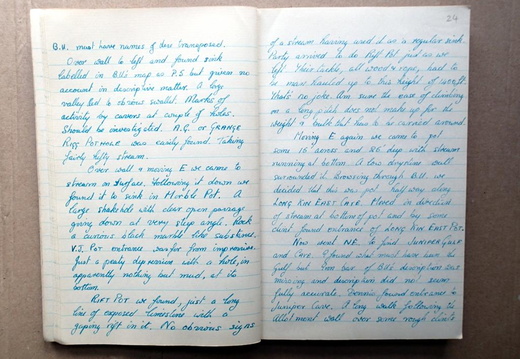 B.U. must have names of dese transposed.
Over wall to left and found sink
labelled in BU's map as P.5 but given no
account in descriptive matter. A long
valley led to obvious swallet. Marks of
activity by cavers at couple of holes.
Should be investigated. A.G. or GRANGE
RIGG POTHOLE was easily found. Taking
fairly hefty stream.
Over wall & moving E we came to
stream on surface. Following it down we
found it to sink in Marble Pot. A
large shakehole with clear open passage
going down at very steep angle. Rock
a curious black marble like substance.
V.J. Pot entrance was far from impressive.
Just a peaty depression with a hole, in
apparently nothing but mud, at its
bottom.
RIFT POT we found, just a long
line of exposed limestone with a
gaping rift in it. No obvious signs
24
of a stream having used it as a regular sink.
Party arrived to do Rift Pot just as we
left. Their tackle, all wire & rope, had to
be man hauled up to this height of 1400 ft.
That's no joke. Am sure the ease of climbing
on a long pitch does not make up for the
weight & bulk that has to be carried around.
Moving E again we came to pot
some 16 across & 25 dep with stream
running at bottom. A low drystone wall
surrounded it. Browsing through B.U. we
decided that this was pot half way along
LONG KIN EAST CAVE. Moved in direction
of stream at bottom of pot and by some
found entrance of LONG KIN EAST POT.
Now went NE. to find JUNIPER GULF
and CAVE. I found what must have been the
Gulf but 1mm bar of BU's description was
missing and description did no seem
fully accurate. Dennis found entrance to
Juniper Cave, it by both following the
Allotment wall over some rough clints